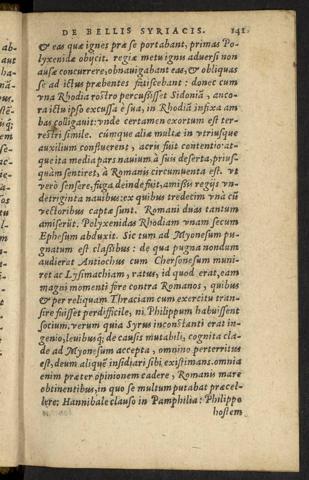 DE BELLIS SYRIACIS. 141
& eas quæ ignes præ se portabant, primas Po-
lyxenidæ obijcit. regiæ metu ignis aduersi non
ausæ concurrere, obnauigabant eas, & obliquas
se ad ictus præbentes fatiscebant: donec cum
vna Rhodia rostro percussisset Sidoniã, anco-
ra ictu ipso excussa è sua, in Rhodiã infixa am-
bas colligauit: vnde certamen exortum est ter-
restri simile. cúmque aliæ multæ in vtriusque
auxilium confluerent, acriu fuit contentio: at-
que ita media pars nauium à suis deserta, prius-
quàm sentiret, à Romanis circumuenta est. vt
verò sensere, fuga deinde fuit, amissis regijs vn-
detriginta nauibus: ex quibus tredetim vnà cũ
vectoribus captæ sunt. Romani duas tantum
amiserũt. Polyxenidas Rhodiam vnam secum
Ephesum abduxit. Sic tum ad Myonesum pu-
gnatum est classibus: de qua pugna nondum
audierat Antiochus cum Chersonesum muni-
ret ac Lysimachiam, ratus, id quod erat, eam
magni momenti fore contra Romanos, quibus
& per reliquam Thraciam cum exercitu tran-
sire fuisset perdifficile, ni Philippum habuissent
socium. verùm quia Syrus inconstanti erat in-
genio, leuibusq; de causis mutabili, cognita cla-
de ad Myonesum accepta, omnino perterritus
est, deum aliquẽ insidiari sibi existimans. omnia
enim præter opinionem cadere, Romanis mare
obtinentibus, in quo se multum putabat præcel-
lere: Hannibale clauso in Pamphilia: Philippo
hostem